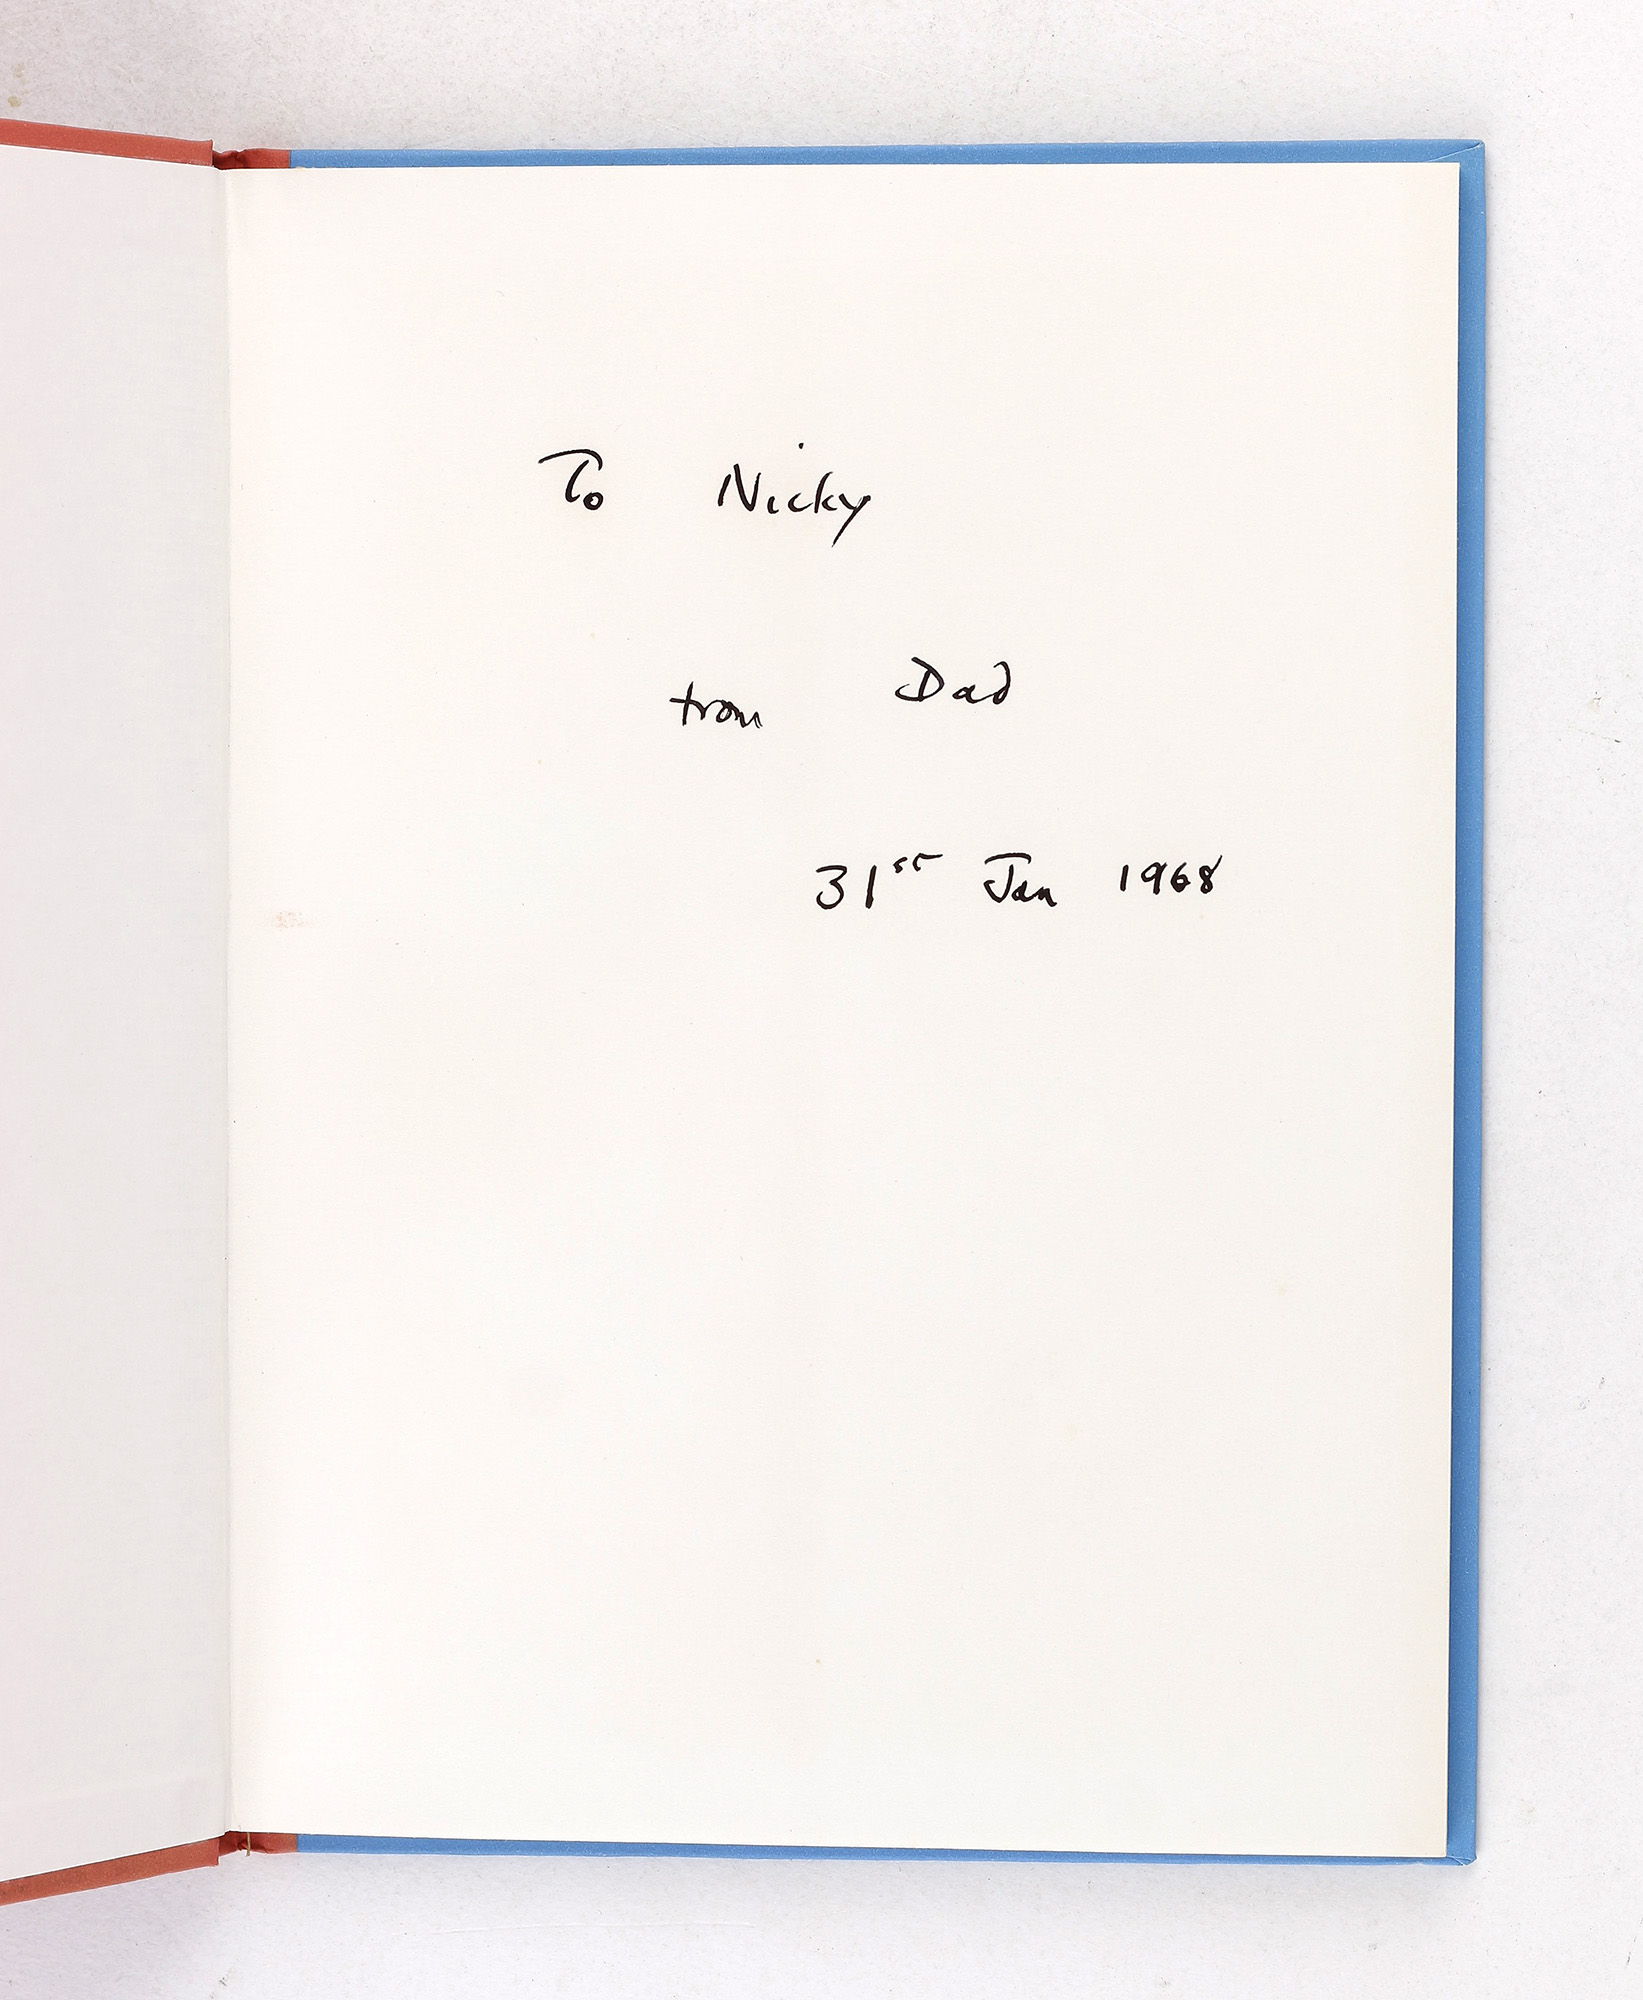 To Nicky
from Dad
31st Jan 1968